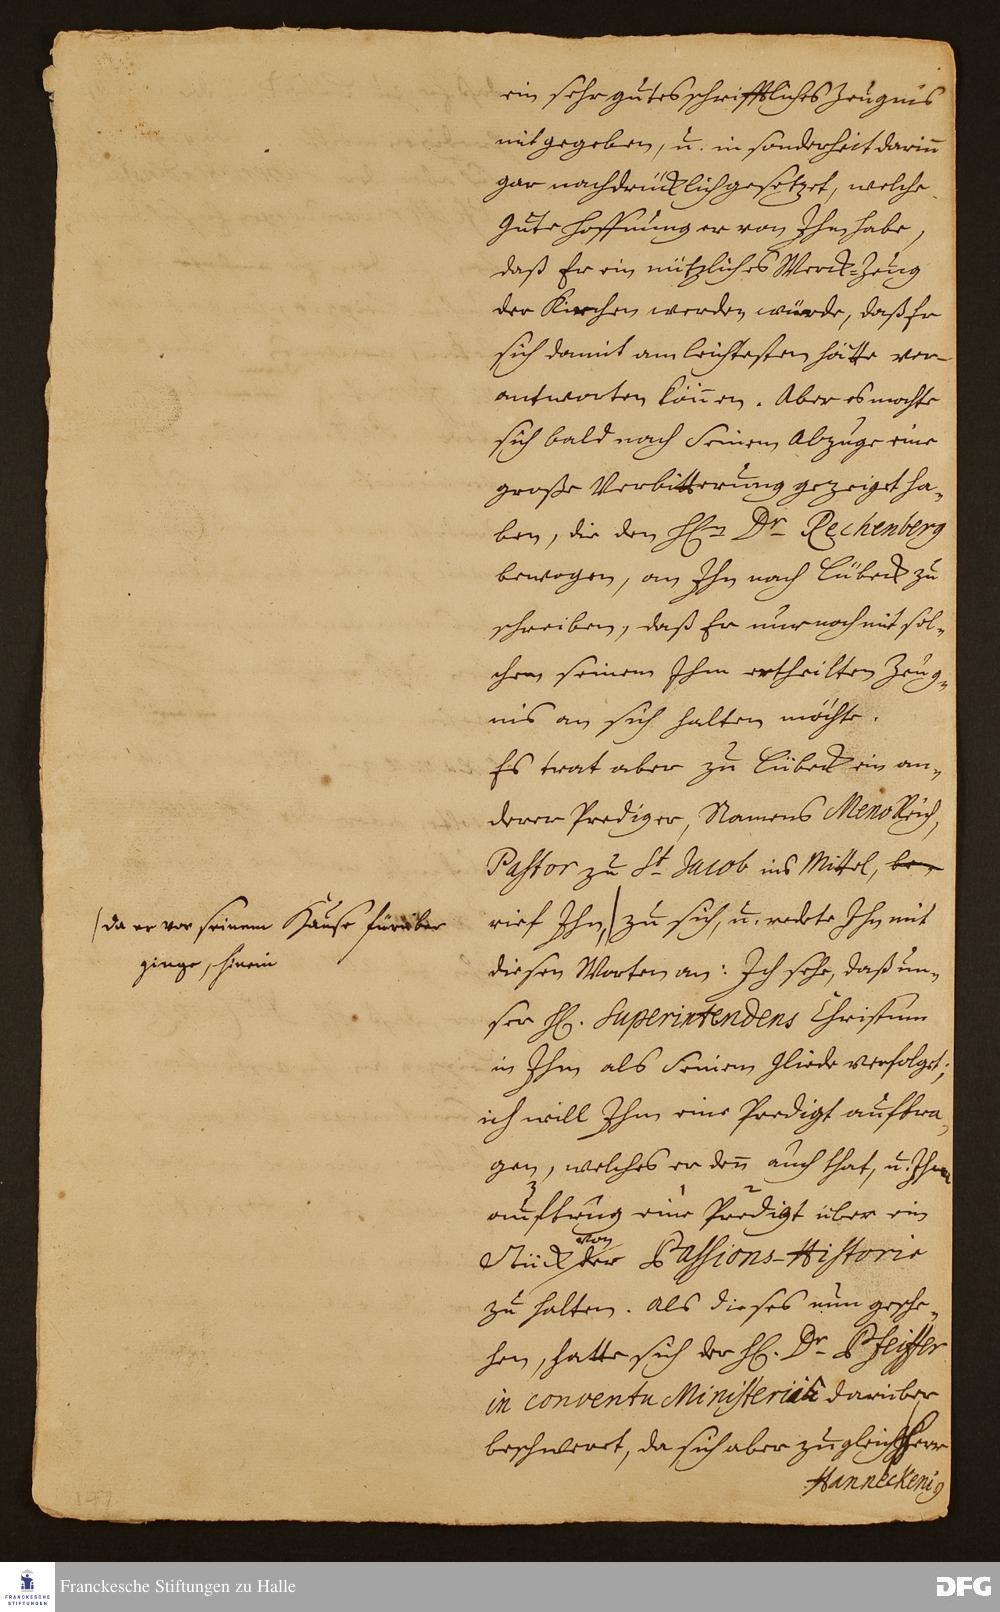 ein sehr gutes schrifftliches Zeugnis
mit gegeben, u. in sonderheit darin̄
gar nachdrücklich gesetzet, welche
Gute Hoffnung er von Ihm habe,
daß Er ein nützliches Werck-Zeug
der Kirchen werden würde, daß Er
sich damit am leichtesten hätte ver-
antworten kön̄en. Aber es mochte
sich bald nach Seinem Abzuge eine
große Verbitterung gezeiget ha-
ben, die den HEn Dr Rechenberg
bewogen, an Ihn nach Lübeck zu
schreiben, daß Er nur noch mit sol-
chem seinem Ihm ertheilten Zeug-
nis an sich halten möchte.
Es trat aber zu Lübeck ein an-
derer Prediger, Namens Meno Reich,
Pastor zu St Jacob ins Mittel, be-
rief Ihn,/ zu sich, u. redete Ihn mit
/da er vor seinem Hause fürüber
ginge, hinein
diesen Worten an: Ich sehe, daß un-
ser H. Superintendens Christum
in Ihm als Seinem Gliede verfolget;
ich will Ihm eine Predigt auftra-
gen, welches er den̄ auch that, u. Ihm
auftrug eine Predigt über ein
Stück von der Passions-Historie
zu halten. Als dieses nun gesche-
hen, hatte sich der H. Dr Pfeiffer
in conventu Ministerii darüber
beschwert, da sich aber zugleich Herr
Hanneckenig
Franckesche Stiftungen zu Halle
FRANCKESCHE
STIFTUNGEN
DFG